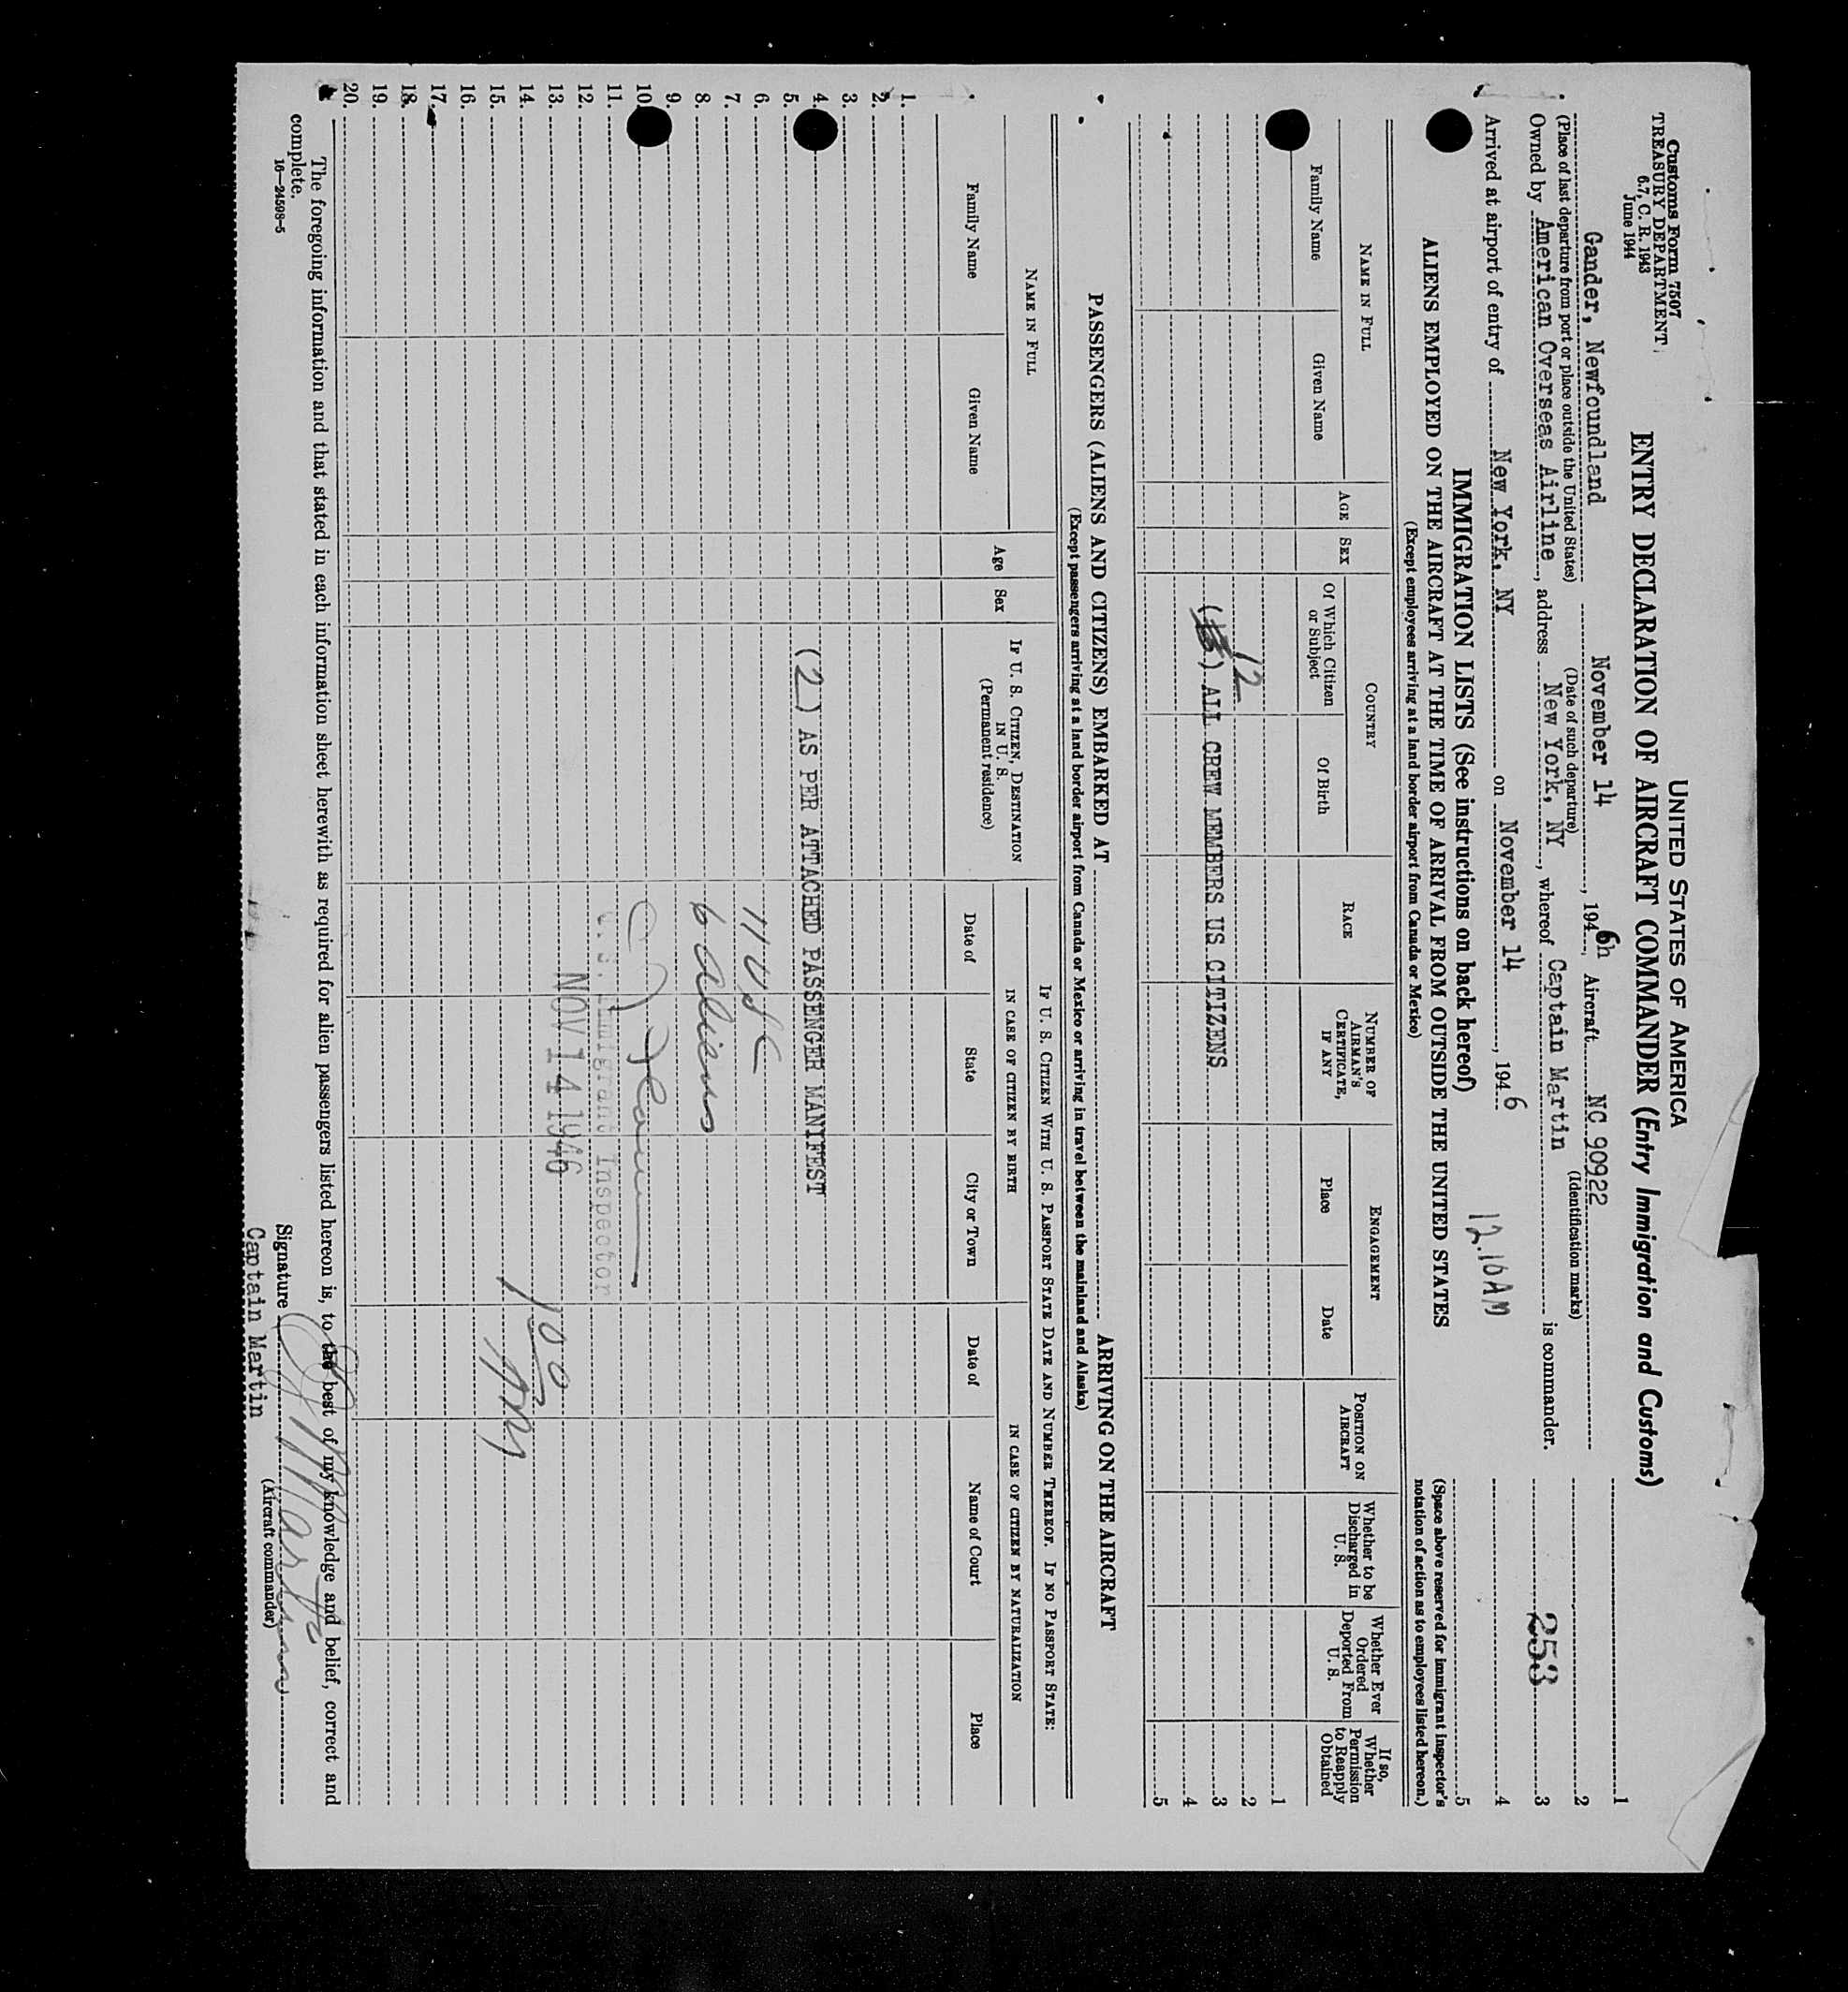 Customs Form 7507
TREASURY DEPARTMENT
6.7, C. R. 1943
June 1944
UNITED STATES OF AMERICA
ENTRY DECLARATION OF AIRCRAFT COMMANDER (Entry Immigration and Customs)
Gander, Newfoundland November 14, 1946h Aircraft NC 90922
(Place of last departure from port or place outside the United States) (Date of such departure) (Identification marks)
Owned by American Overseas Airline, address New York, NY, whereof Captain Martin is commander.
Arrived at airport of entry of New York, NY on November 14, 1946 12.10AM
1
2
253 3
4
5
IMMIGRATION LISTS (See instructions on back hereof)
(Space above reserved for immigrant inspector's notation of action as to employees listed hereon.)
ALIENS EMPLOYED ON THE AIRCRAFT AT THE TIME OF ARRIVAL FROM OUTSIDE THE UNITED STATES
(Except employees arriving at a land border airport from Canada or Mexico)
NAME IN FULL AGE SEX COUNTRY RACE NUMBER OF AIRMAN'S CERTIFICATE, IF ANY ENGAGEMENT POSITION ON AIRCRAFT Whether to be Discharged in U. S. Whether Ever Ordered Deported From U. S. If so, Whether Permission to Reapply Obtained
Family Name Given Name Of Which Citizen or Subject Of Birth Place Date
1
12 2
( ) ALL CREW MEMBERS US CITIZENS 3
4
5
PASSENGERS (ALIENS AND CITIZENS) EMBARKED AT ARRIVING ON THE AIRCRAFT
(Except passengers arriving at a land border airport from Canada or Mexico or arriving in travel between the mainland and Alaska)
NAME IN FULL Age Sex IF U. S. CITIZEN, DESTINATION IN U. S. (Permanent residence) IF U. S. CITIZEN WITH U. S. PASSPORT STATE DATE AND NUMBER THEREOF. IF NO PASSPORT STATE:
IN CASE OF CITIZEN BY BIRTH IN CASE OF CITIZEN BY NATURALIZATION
Family Name Given Name Date of State City or Town Date of Name of Court Place
1.
2.
3.
4. (2) AS PER ATTACHED PASSENGER MANIFEST
5.
6. 11 USC
7.
8. 6 aliens
9.
10.
11. U.S. Immigrant Inspector
12.
13. NOV 14 1946
14. 100
15.
16.
17.
18.
19.
20.
The foregoing information and that stated in each information sheet herewith as required for alien passengers listed hereon is, to the best of my knowledge and belief, correct and
complete.
16—24598-5
Signature
(Aircraft commander)
Captain Martin